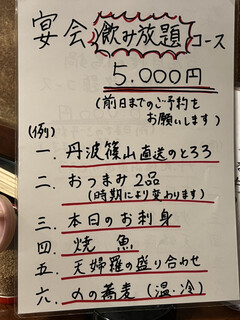 宴会飲み放題コース
5.000円
(前日までのご予約を
お願いします)
(例)
一. 丹波篠山直送のとろろ
二. おつまみ2品
(時期により変わります)
三. 本日のお刺身
四. 焼魚
五. 天婦羅の盛り合わせ
六. 〆の蕎麦(温・冷)